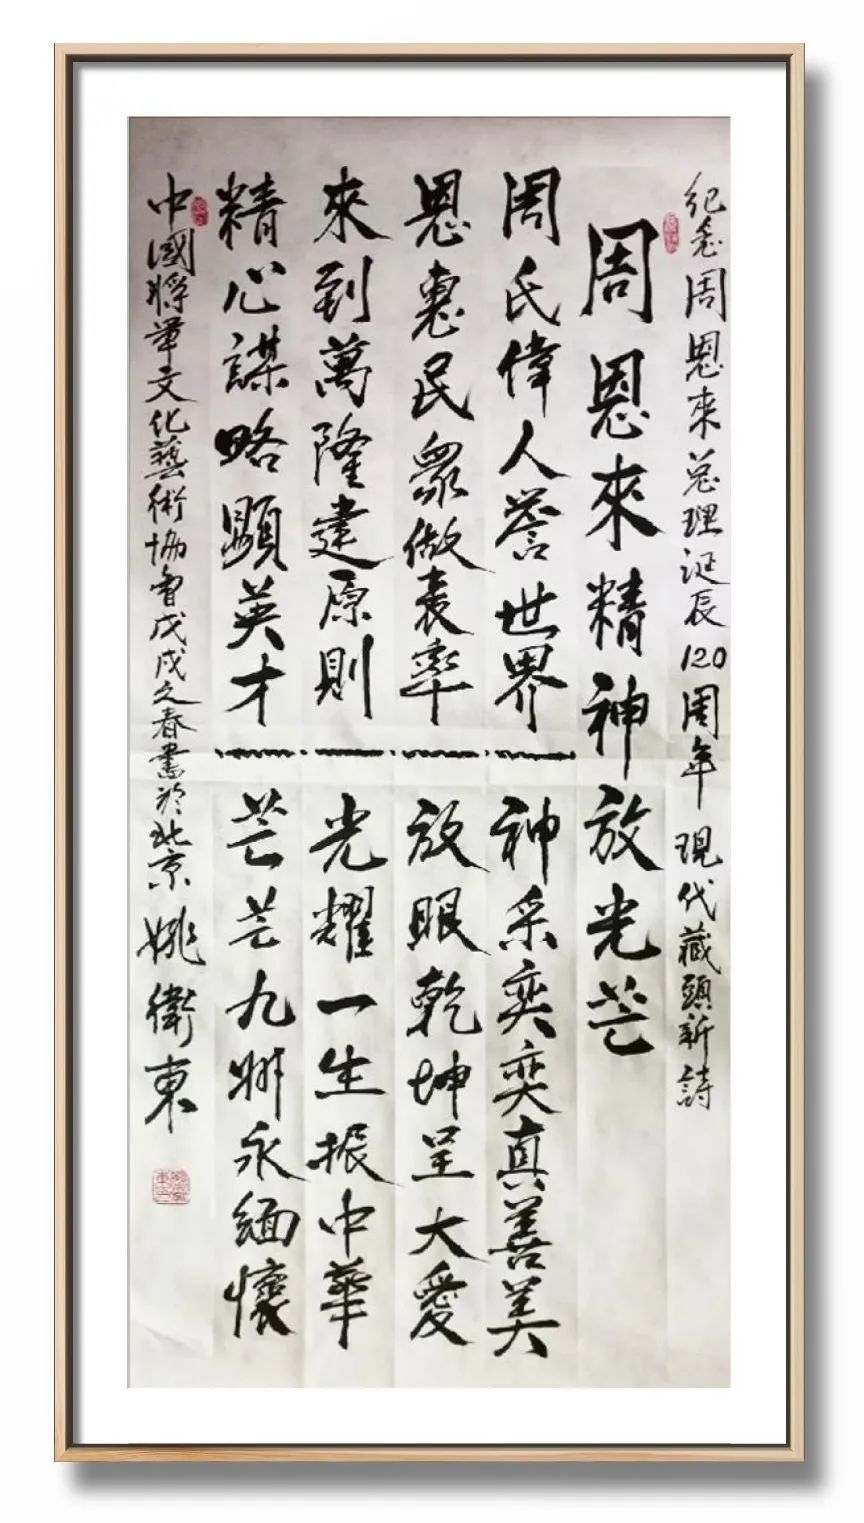 紀念周恩來總理誕辰120周年 現代藏頭新詩
周恩來精神放光芒
周氏偉人譽世界
恩惠民眾做表率
來到萬隆建原則
精心謀略顯英才
神采奕奕真善美
放眼乾坤呈大愛
光耀一生振中華
芒芒九州永緬懷
中國將軍文化藝術協會戊戌之春書於北京 姚衛東